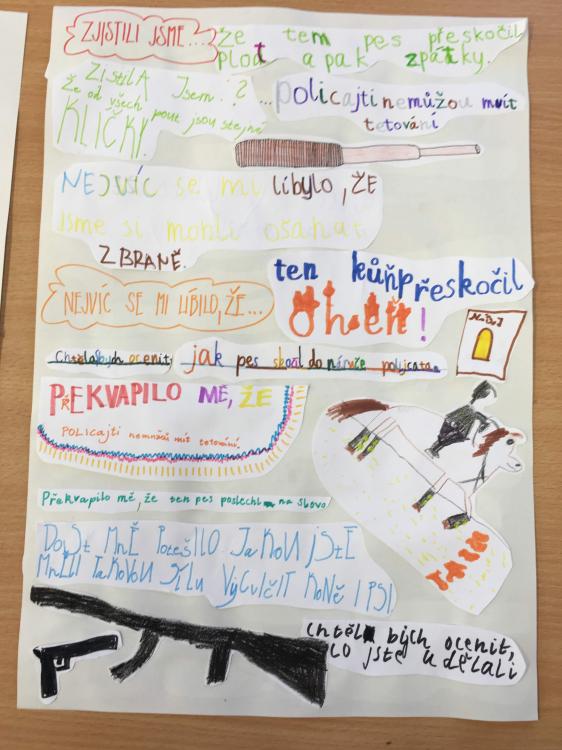 ZJISTILI JSME...
že tem pes přeskočil
plot a pak zpátky.
ZISTILA JSEM..?
Že od všech
pout jsou stejné
KLÍČKY.
...policajti nemůžou mít
tetování
NEJVÍC se mi líbylo, ŽE
jsme si mohli osahat
ZBRANĚ.
ten kůň přeskočil
Oheň!
NEJVÍC SE MI LÍBILO, ŽE...
Chtěla bych ocenit
jak pes skočil do náruče policata.
PŘEKVAPILO MĚ, ŽE
POLICAJTI nemůžou mít tetování.
Překvapilo mě, že ten pes poslechl na slovo.
DOST MNĚ POTĚŠILO JAKOU JSTE
MNĚLI TAKOVOU SÍLU VYCVIČIT KONĚ I PSI.
chtěl bých ocenit,
co jste udělali